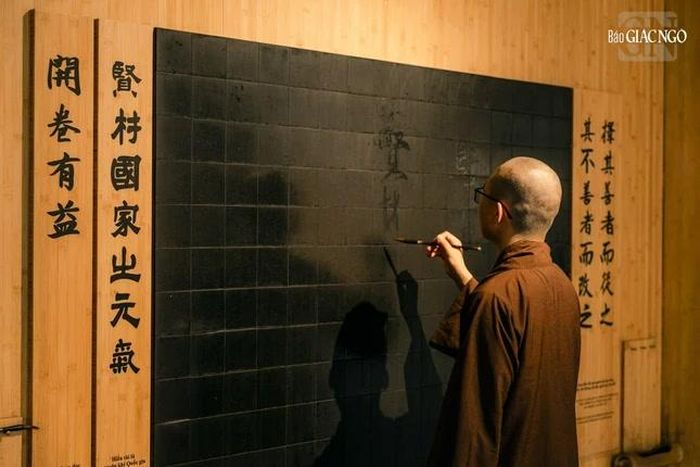 Báo GIÁC NGỘ
開卷有益
賢材國家之元氣
Hiền tài là
khí Quốc gia
賢材
擇其善者而從之
其不善者而改之